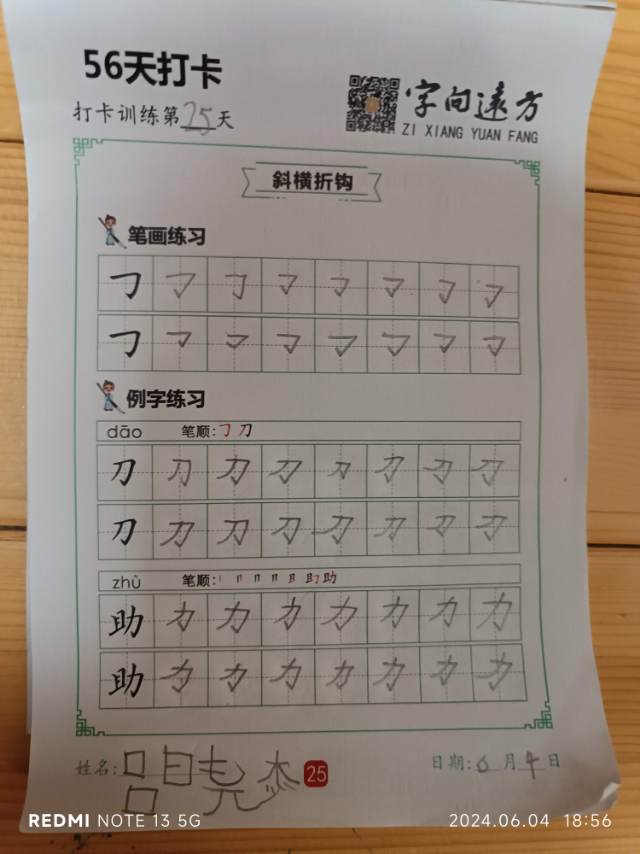 56天打卡
打卡训练第25天
字向远方
ZI XIANG YUAN FANG
斜横折钩
笔画练习
例字练习
dāo 笔顺: 刀
刀 刀 刀 刀 刀 刀 刀 刀
刀 刀 刀 刀 刀 刀 刀 刀
zhù 笔顺: 助
助 力 力 力 力 力 力 力
助 力 力 力 力 力 力 力
姓名: 吕晓杰 25 日期: 6月4日
REDMI NOTE 13 5G 2024.06.04 18:56